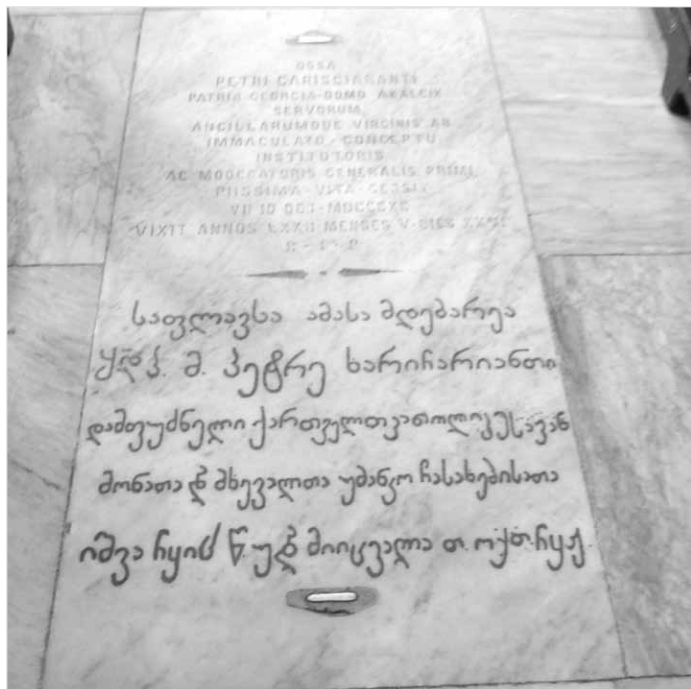 OSSA
PETRI CARISCIARANTI
PATRIA GEORGIA-DOMO AKALCIK
SERVORUM
ANCILLARUMQUE VIRGINIS AB
IMMACULATO-CONCEPTU
INSTITUTORIS
AC MODERATORIS GENERALIS PRIMI
PIISSIMA-VITA-CESSIT
VII ID OCT-MDCCCXC
VIXIT ANNOS LXXII MENSES V-DIES
R-I-P
საფლავსა ამასა მდებარეა
ყდპ. მ. პეტრე ხარიჩარიანთი
დამფუძნელი ქართველთ კათოლიკე სავან
მონათა და მხევალთა უმანკო ჩასახებისათა
იშვა ჩყიც წ. უდ მიიცვალა თ. ოქთ. ჩყჟ